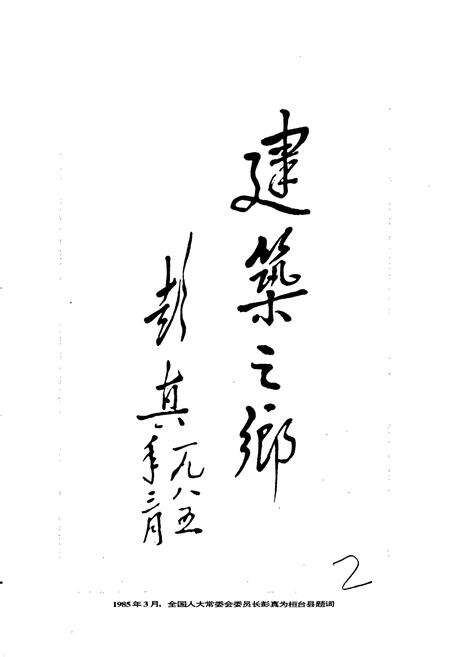 建築之鄉
彭真
一九八五
年三月
2
1985年3月，全国人大常委会委员长彭真为桓台县题词